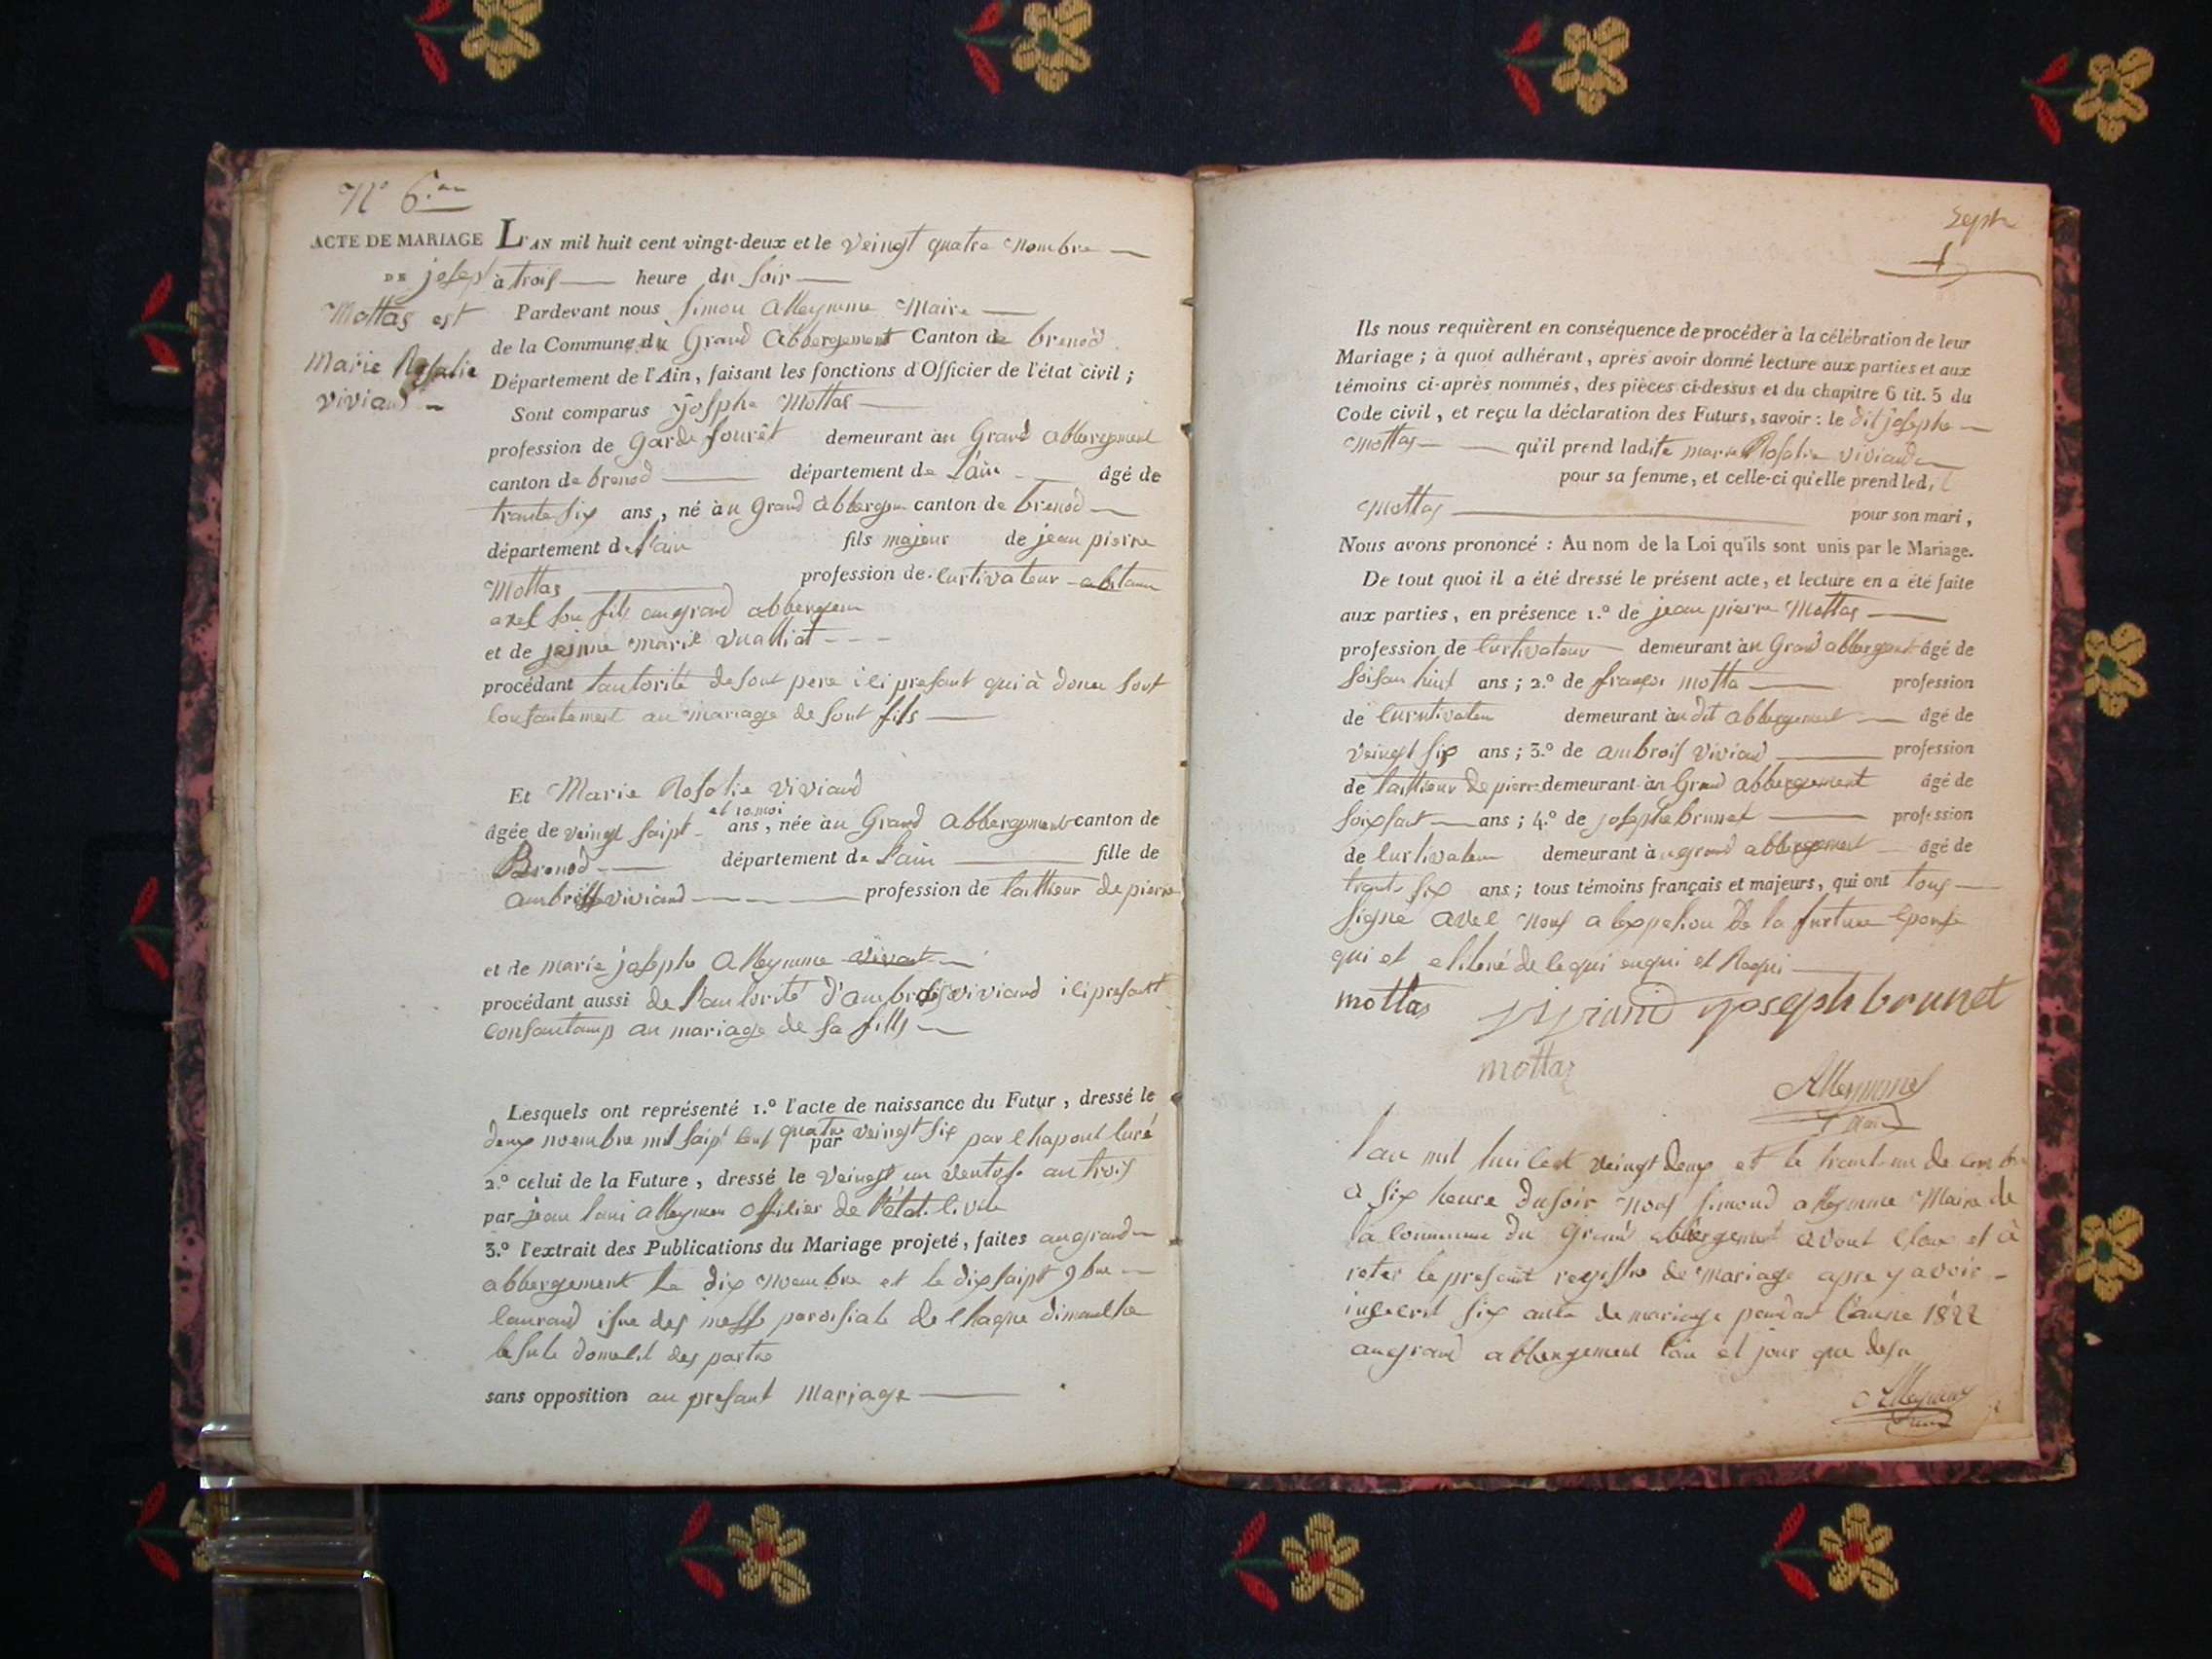 N° 6.
ACTE DE MARIAGE
DE joseph
Mottas est
Marie Rosalie
viviand
L'AN mil huit cent vingt-deux et le veingt quatre nombre
à trois heure du soir
Pardevant nous simon alleymme Maire
de la Commune du Grand abbergement Canton de brenod
Département de l'Ain, faisant les fonctions d'Officier de l'état civil;
Sont comparus josphe Mottas
profession de garde fourêt demeurant au Grand abbergement
canton de brenod département de L'ain âgé de
trante six ans, né au grand abbergem canton de brenod
département de l'ain fils majeur de jean pierre
Mottas profession de curtivateur abitann
avec son fils au grand abbergem
et de jeinne marie vualliat
procédant l'autorité de sont pere ici presant qui à donu sont
consantement au mariage de sont fils
Et Marie Rosalie viviand
et 10 moi
âgée de veingt saipt ans, née au Grand abbergement canton de
Brenod département de l'ain fille de
ambroise viviand profession de taillieur de pierre
et de marie josephe alleymme vivant
procédant aussi de l'autorité d'ambrois viviand ici presant
consantamp au mariage de sa fills
Lesquels ont représenté 1.° l'acte de naissance du Futur, dressé le
deux noembre mil saipt cent quatre par veingt six par chapont curé
2.° celui de la Future, dressé le veingt un ventose an trois
par jean alleymen officier de l'état civile
3.° l'extrait des Publications du Mariage projeté, faites au grand
abbergement Le dix noembre et le dix saipt 9bre
courand isue des messe paroisiale de chaque dimanche
le sule domicil des partie
sans opposition au presant Mariage
Septe
Ils nous requièrent en conséquence de procéder à la célébration de leur
Mariage; à quoi adhérant, après avoir donné lecture aux parties et aux
témoins ci-après nommés, des pièces ci-dessus et du chapitre 6 tit. 5 du
Code civil, et reçu la déclaration des Futurs, savoir: le dit josephe
Mottas qu'il prend ladite marie Rosalie viviand
pour sa femme, et celle-ci qu'elle prend led.
Mottas pour son mari,
Nous avons prononcé : Au nom de la Loi qu'ils sont unis par le Mariage.
De tout quoi il a été dressé le présent acte, et lecture en a été faite
aux parties, en présence 1.° de jean pierre Mottas
profession de curtivateur demeurant au Grand abbergement âgé de
soisan huit ans; 2.° de françois motta profession
de curtivateu demeurant au dit abbergement âgé de
veingt six ans; 3.° de ambrois viviand profession
de taillieur de pierre demeurant au Grand abbergement âgé de
soixsant ans; 4.° de josephe brunet profession
de curtivateu demeurant au grand abbergement âgé de
trante six ans; tous témoins français et majeurs, qui ont tous
signé avec nous a lexpetion de la furture epouse
qui et de qui et Requi
mottas viviand joseph brunet
mottas
Alleymme
L'an mil hui cent veingt deux et le trant un de cembre
à six heure du soir nous simond alleymme Maire de
la commune du Grand abbergement avont cloux et à
reter le presant registre de Mariage apre y avoir
inscrit six acte de mariage pendant l'anne 1822
au grand abbergement l'an et jour que desu
Alleymme